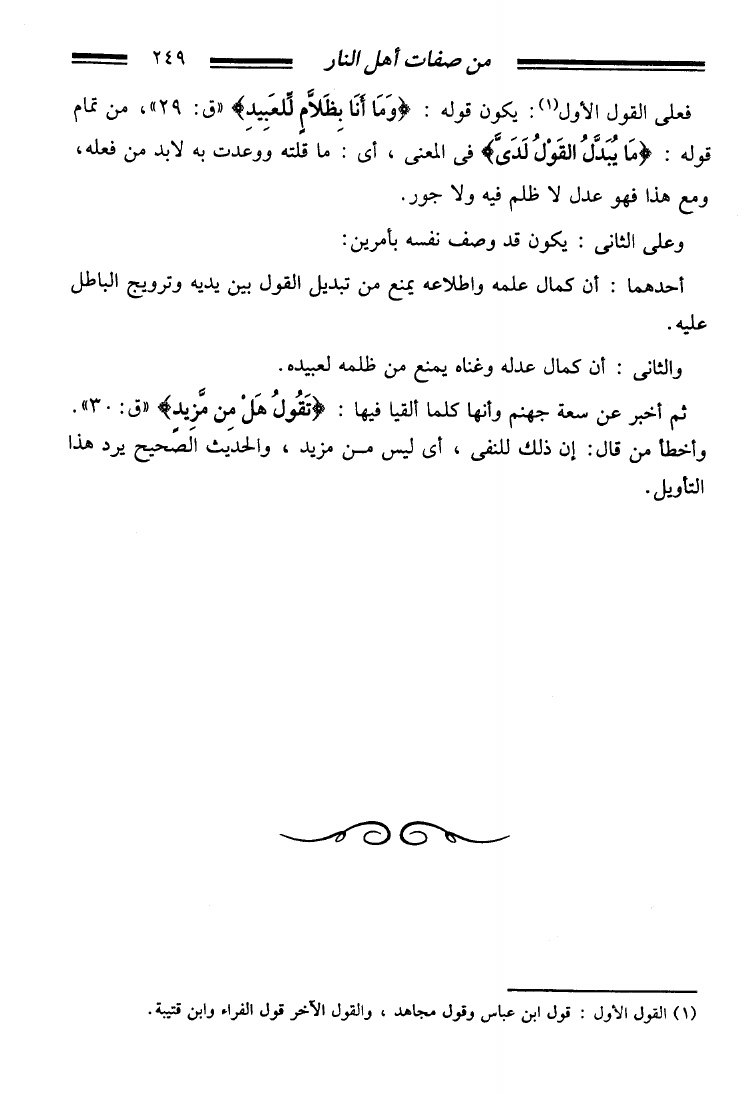 من صفات أهل النار ٢٤٩
فعلى القول الأول(١): يكون قوله : ﴿وَمَا أَنَا بِظَلاَّمٍ لِّلعَبِيدِ﴾ «ق: ٢٩»، من تمام
قوله : ﴿مَا يُبَدَّلُ القَوْلُ لَدَىَّ﴾ فى المعنى ، أى : ما قلته ووعدت به لابد من فعله،
ومع هذا فهو عدل لا ظلم فيه ولا جور.
وعلى الثانى : يكون قد وصف نفسه بأمرين:
أحدهما : أن كمال علمه واطلاعه يمنع من تبديل القول بين يديه وترويج الباطل
عليه.
والثانى : أن كمال عدله وغناه يمنع من ظلمه لعبيده.
ثم أخبر عن سعة جهنم وأنها كلما ألقيا فيها : ﴿تَقُولُ هَلْ مِن مَّزِيدٍ﴾ «ق: ٣٠».
وأخطأ من قال: إن ذلك للنفى ، أى ليس مـن مزيد ، والحديث الصحيح يرد هذا
التأويل.
(١) القول الأول : قول ابن عباس وقول مجاهد ، والقول الآخر قول الفراء وابن قتيبة.